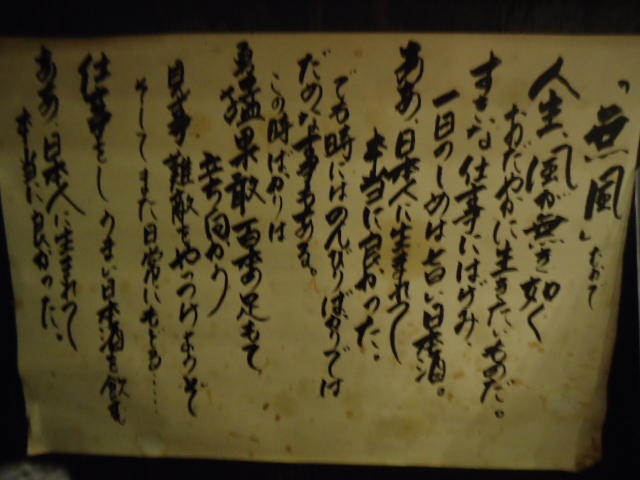 「無風」むかで
人生、風が無き如く
おだやかに生きたいものだ。
すきな仕事にはげみ
一日のしめは旨い日本酒。
ああ、日本人に生まれて
本当に良かった。
でも時にはのんびりばかりでは
だめな事もある。
この時ばかりは
勇猛果敢百本の足もて
立ち向かう
見事難敵をやっつけようぞ
そしてまた日常にもどる……
仕事をしうまい日本酒を飲む
ああ、日本人に生まれて
本当に良かった。